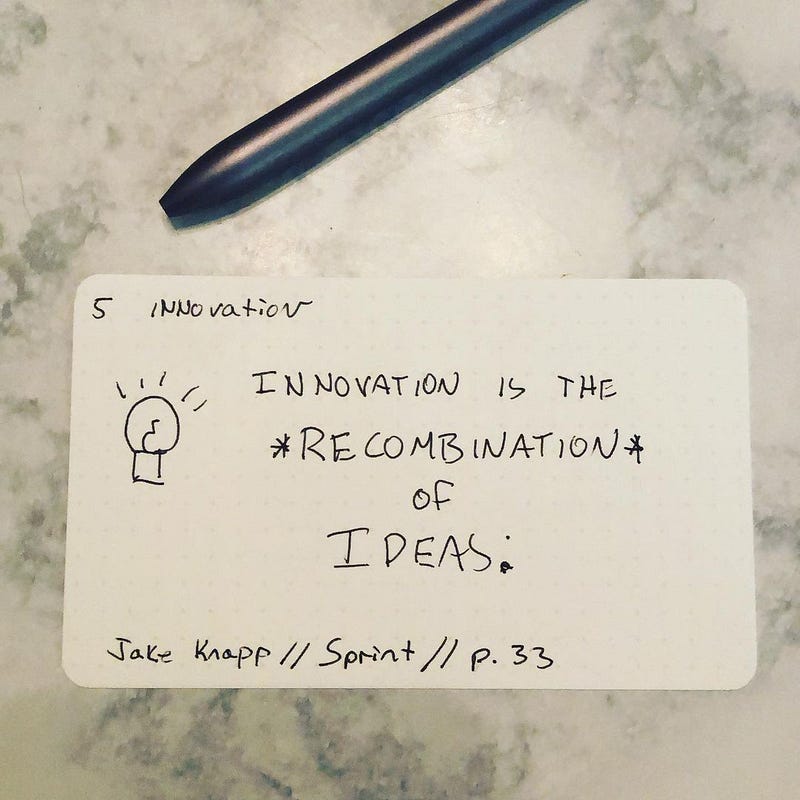 5 INNOvation
INNOVATION IS THE
*RECOMBINATION*
of
IDEAS:
Jake Knapp // Sprint // p. 33